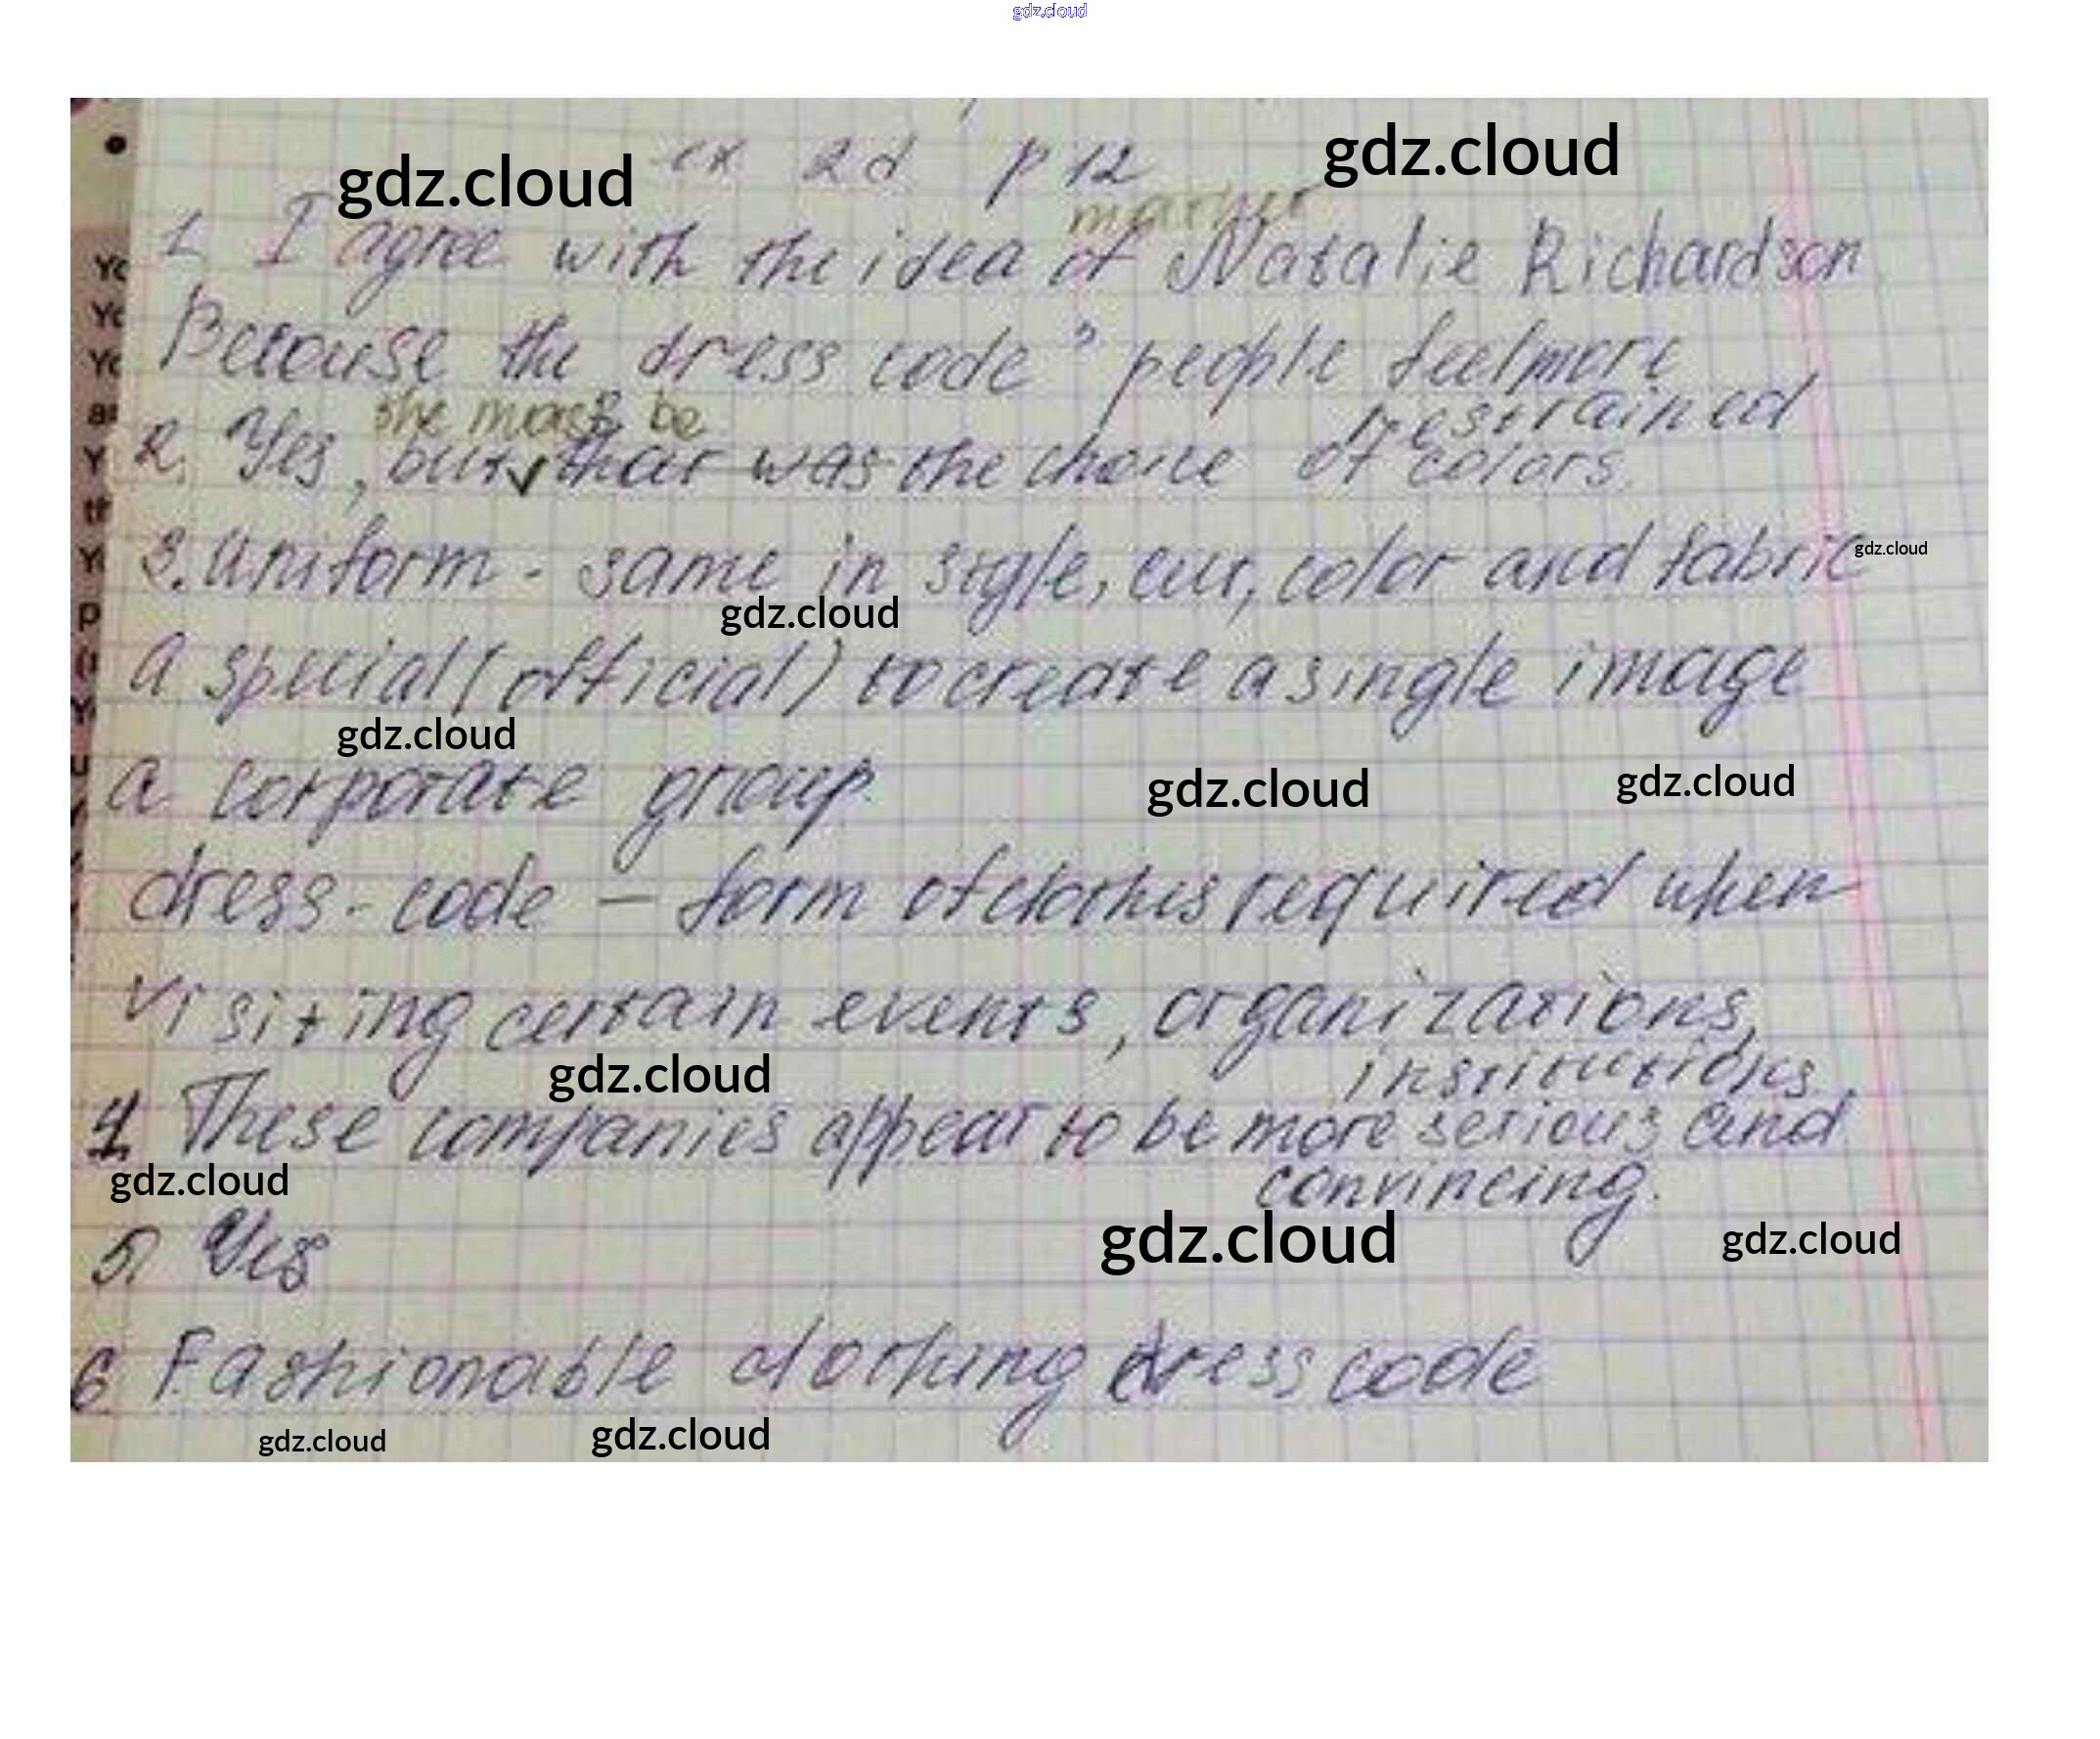 gdz.cloud
ex 2d p 12
gdz.cloud
gdz.cloud
1. I agree with the idea of Natalie Richardson
Because the dress code people feel more
restrained
she must be
2. Yes, but that was the choice of colors.
3. Uniform - same in style, cut, color and fabric
gdz.cloud
gdz.cloud
a special (official) to create a single image
gdz.cloud
a corporate group
gdz.cloud
gdz.cloud
dress-code - form of clothes required when
visiting certain events, organizations,
institutions
gdz.cloud
4. These companies appear to be more serious and
convincing.
gdz.cloud
5. Yes
gdz.cloud
gdz.cloud
6 Fashionable clothing dress code
gdz.cloud
gdz.cloud